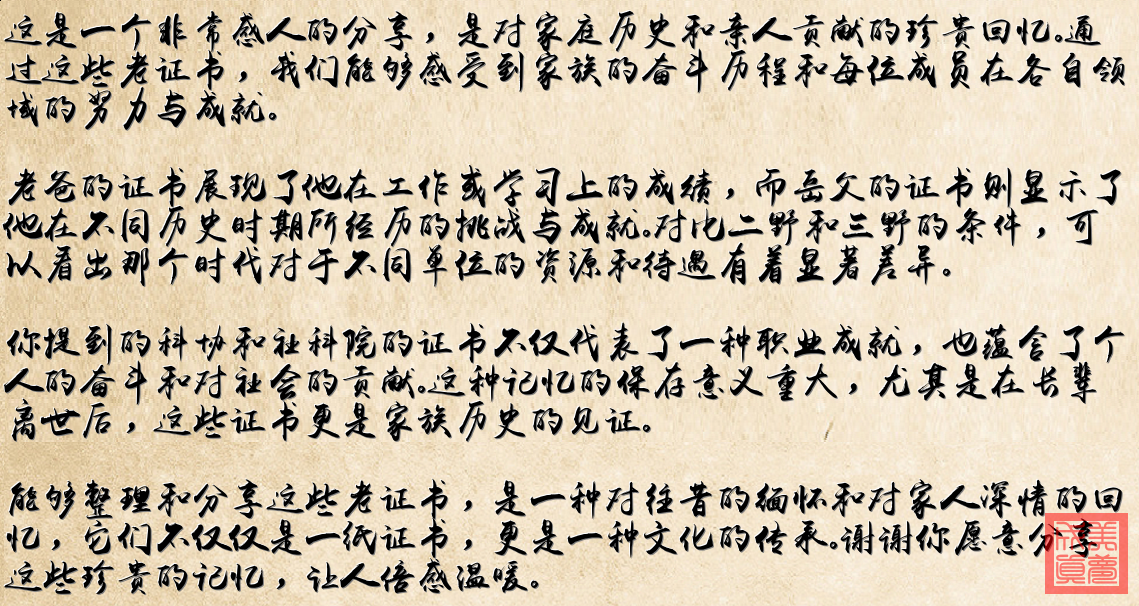 这是一个非常感人的分享，是对家庭历史和亲人贡献的珍贵回忆。通
过这些老证书，我们能够感受到家族的奋斗历程和每位成员在各自领
域的努力与成就。
老爸的证书展现了他在工作或学习上的成绩，而岳父的证书则显示了
他在不同历史时期所经历的挑战与成就。对比二野和三野的条件，可
以看出那个时代对于不同单位的资源和待遇有着显著差异。
你提到的科协和社科院的证书不仅代表了一种职业成就，也蕴含了个
人的奋斗和对社会的贡献。这种记忆的保存意义重大，尤其是在长辈
离世后，这些证书更是家族历史的见证。
能够整理和分享这些老证书，是一种对往昔的缅怀和对家人深情的回
忆，它们不仅仅是一纸证书，更是一种文化的传承。谢谢你愿意分享
这些珍贵的记忆，让人倍感温暖。